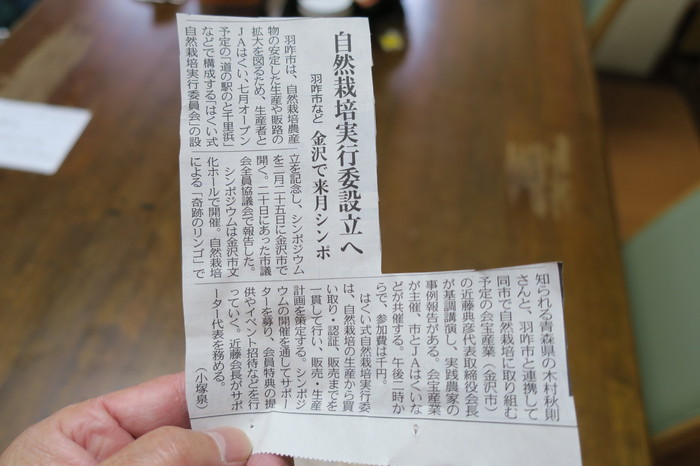 自然栽培実行委設立へ
羽咋市など 金沢で来月シンポ
羽咋市は、自然栽培農産
物の安定した生産や販路の
拡大を図るため、生産者と
ＪＡはくい、七月オープン
予定の「道の駅のと千里浜」
などで構成する「はくい式
自然栽培実行委員会」の設
立を記念し、シンポジウム
を三月二十五日に金沢市で
開く。二十日にあった市議
会全員協議会で報告した。
シンポジウムは金沢市文
化ホールで開催。自然栽培
による「奇跡のリンゴ」で
知られる青森県の木村秋則
さんと、羽咋市と連携して
同市で自然栽培に取り組む
予定の会宝産業（金沢市）
の近藤典彦代表取締役会長
が基調講演し、実践農家の
事例報告がある。会宝産業
が主催、市とＪＡはくいな
どが共催する。午後二時か
らで、参加費は千円。
はくい式自然栽培実行委
は、自然栽培の生産から買
い取り・認証、販売までを
一貫して行い、販売・生産
計画を策定する。シンポジ
ウムの開催を通してサポー
ターを募り、会員特典の提
供やイベント招待などを行
っていく。近藤会長がサポ
ーター代表を務める。
（小塚泉）